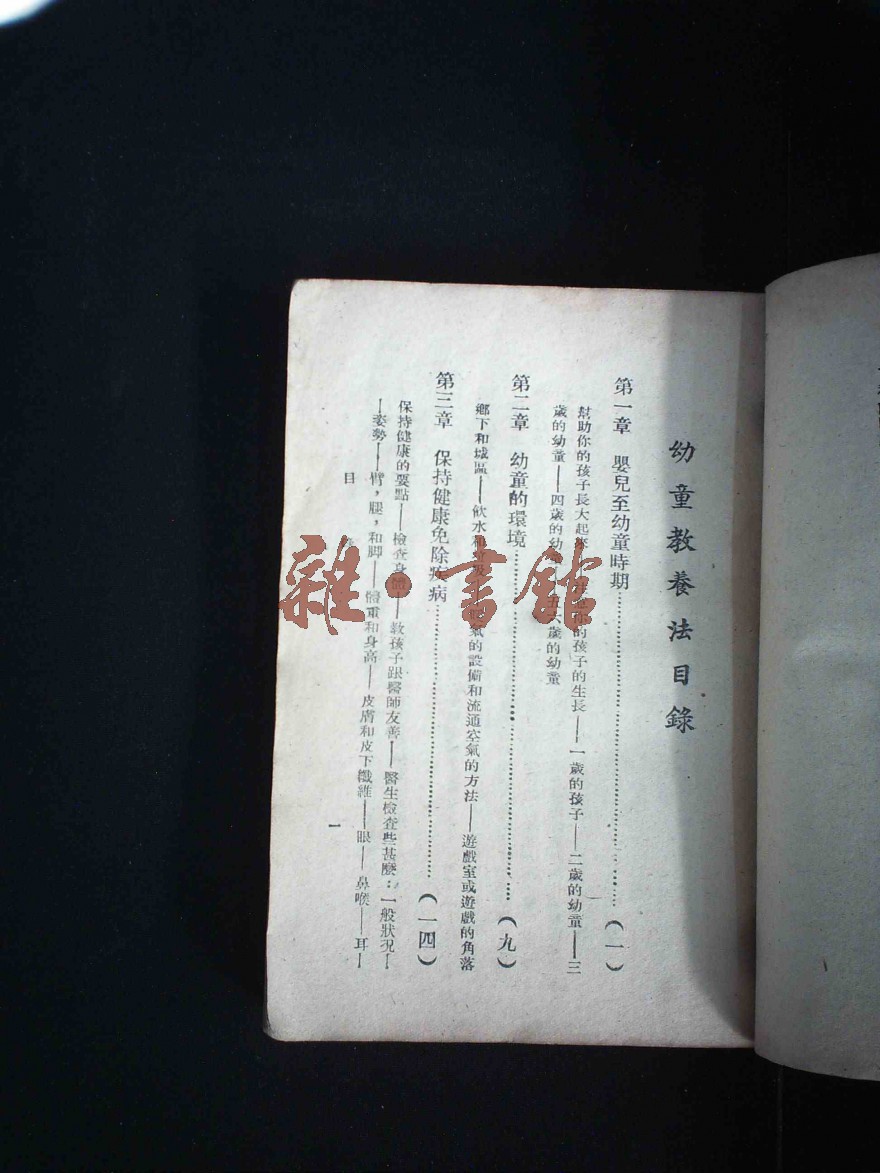 幼童教養法目錄
第一章　嬰兒至幼童時期……………（一）
幫助你的孩子長大起來 你的孩子的生長——一歲的孩子——二歲的幼童——三
歲的幼童——四歲的幼童——五六歲的幼童
第二章　幼童的環境……………（九）
鄉下和城區——飲水和 的設備和流通空氣的方法——遊戲室或遊戲的角落
第三章　保持健康免除疾病……………（一四）
保持健康的要點——檢查身體——教孩子跟醫師友善——醫生檢查些甚麼：一般狀況—
—姿勢——臂，腿，和脚——體重和身高——皮膚和皮下纖維——眼——鼻喉——耳—
目
一
雜·書館